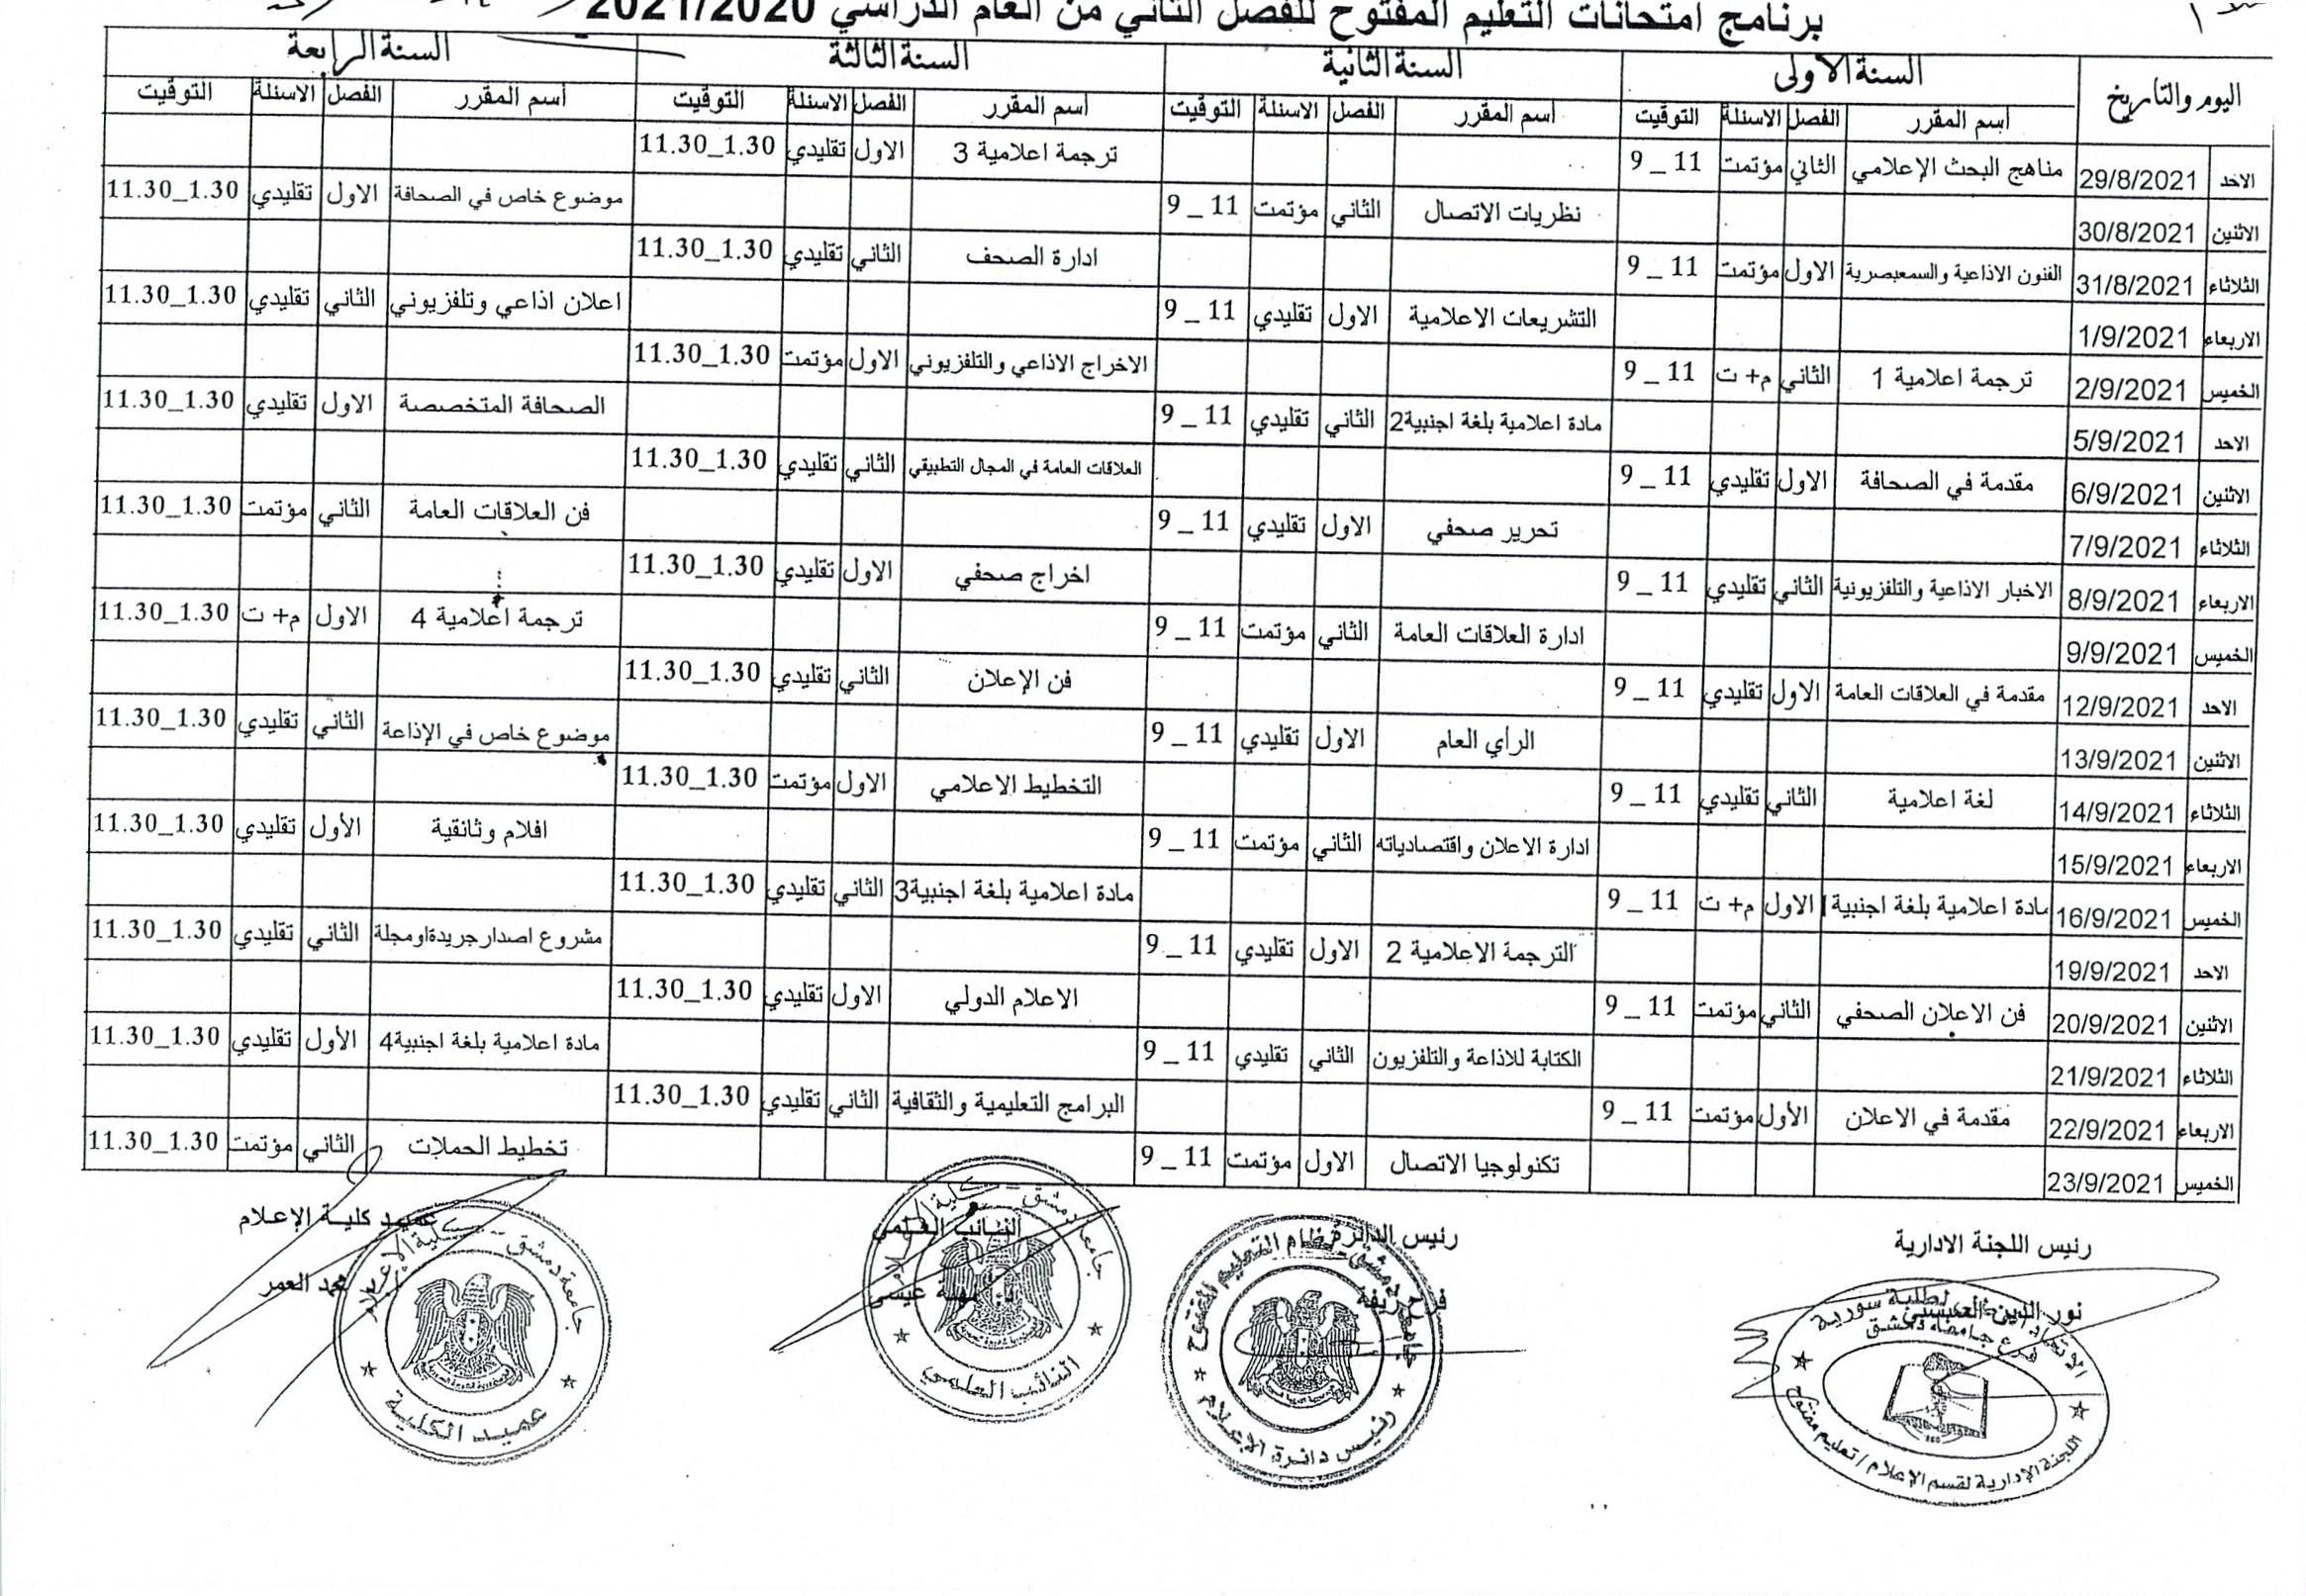 برنامج امتحانات التعليم المفتوح للفصل الثاني من العام الدراسي 2021/2020
اليوم والتاريخ السنة الاولى السنة الثانية السنة الثالثة السنة الرابعة
اسم المقرر الفصل الاسئلة التوقيت اسم المقرر الفصل الاسئلة التوقيت اسم المقرر الفصل الاسئلة التوقيت اسم المقرر الفصل الاسئلة التوقيت
الاحد 29/8/2021 مناهج البحث الإعلامي الثاني مؤتمت 9 _ 11 ترجمة اعلامية 3 الاول تقليدي 11.30_1.30
الاثنين 30/8/2021 نظريات الاتصال الثاني مؤتمت 9 _ 11 موضوع خاص في الصحافة الاول تقليدي 11.30_1.30
الثلاثاء 31/8/2021 الفنون الاذاعية والسمعبصرية الاول مؤتمت 9 _ 11 ادارة الصحف الثاني تقليدي 11.30_1.30
الاربعاء 1/9/2021 التشريعات الاعلامية الاول تقليدي 9 _ 11 اعلان اذاعي وتلفزيوني الثاني تقليدي 11.30_1.30
الخميس 2/9/2021 ترجمة اعلامية 1 الثاني م+ ت 9 _ 11 الاخراج الاذاعي والتلفزيوني الاول مؤتمت 11.30_1.30
الاحد 5/9/2021 مادة اعلامية بلغة اجنبية2 الثاني تقليدي 9 _ 11 الصحافة المتخصصة الاول تقليدي 11.30_1.30
الاثنين 6/9/2021 مقدمة في الصحافة الاول تقليدي 9 _ 11 العلاقات العامة في المجال التطبيقي الثاني تقليدي 11.30_1.30
الثلاثاء 7/9/2021 تحرير صحفي الاول تقليدي 9 _ 11 فن العلاقات العامة الثاني مؤتمت 11.30_1.30
الاربعاء 8/9/2021 الاخبار الاذاعية والتلفزيونية الثاني تقليدي 9 _ 11 اخراج صحفي الاول تقليدي 11.30_1.30
الخميس 9/9/2021 ادارة العلاقات العامة الثاني مؤتمت 9 _ 11 ترجمة اعلامية 4 الاول م+ ت 11.30_1.30
الاحد 12/9/2021 مقدمة في العلاقات العامة الاول تقليدي 9 _ 11 فن الإعلان الثاني تقليدي 11.30_1.30
الاثنين 13/9/2021 الرأي العام الاول تقليدي 9 _ 11 موضوع خاص في الإذاعة الثاني تقليدي 11.30_1.30
الثلاثاء 14/9/2021 لغة اعلامية الثاني تقليدي 9 _ 11 التخطيط الاعلامي الاول مؤتمت 11.30_1.30
الاربعاء 15/9/2021 ادارة الاعلان واقتصادياته الثاني مؤتمت 9 _ 11 افلام وثائقية الأول تقليدي 11.30_1.30
الخميس 16/9/2021 مادة اعلامية بلغة اجنبية1 الاول م+ ت 9 _ 11 مادة اعلامية بلغة اجنبية3 الثاني تقليدي 11.30_1.30
الاحد 19/9/2021 الترجمة الاعلامية 2 الاول تقليدي 9 _ 11 مشروع اصدارجريدةاومجلة الثاني تقليدي 11.30_1.30
الاثنين 20/9/2021 فن الاعلان الصحفي الثاني مؤتمت 9 _ 11 الاعلام الدولي الاول تقليدي 11.30_1.30
الثلاثاء 21/9/2021 الكتابة للاذاعة والتلفزيون الثاني تقليدي 9 _ 11 مادة اعلامية بلغة اجنبية4 الأول تقليدي 11.30_1.30
الاربعاء 22/9/2021 مقدمة في الاعلان الأول مؤتمت 9 _ 11 البرامج التعليمية والثقافية الثاني تقليدي 11.30_1.30
الخميس 23/9/2021 تكنولوجيا الاتصال الاول مؤتمت 9 _ 11 تخطيط الحملات الثاني مؤتمت 11.30_1.30
رئيس اللجنة الادارية رئيس الدائرة النائب العلمي عميد كلية الإعلام
نور الدين فرح عيسى العمر
فرع جامعة دمشق
اللجنة الإدارية لقسم الإعلام / تعليم مفتوح
نظام التعليم المفتوح
رئيس دائرة الإعلام
جامعة دمشق - كلية الإعلام
النائب العلمي
جامعة دمشق - كلية الإعلام
عميد الكلية